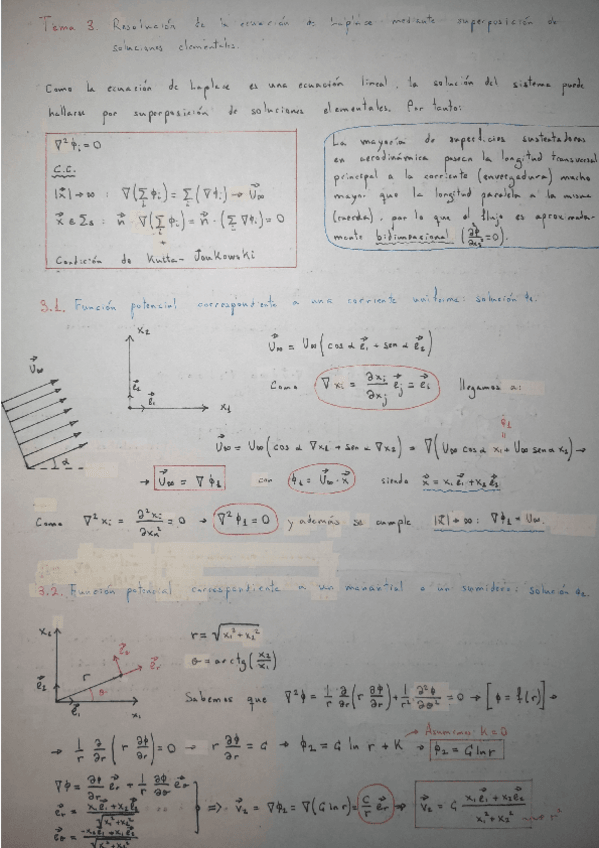 Tema 3. Resolución de la ecuación de Laplace mediante superposición de
soluciones elementales.
Como la ecuación de Laplace es una ecuación lineal, la solución del sistema puede
hallarse por superposición de soluciones elementales. Por tanto:
∇²ϕᵢ = 0
C.C.
|x⃗| → ∞ : ∇(∑ϕᵢ) = ∑(∇ϕᵢ) → U⃗∞
x⃗ ∈ Σs : n⃗ · ∇(∑ϕᵢ) = n⃗ · (∑∇ϕᵢ) = 0
+
Condición de Kutta-Joukowski
La mayoría de superficies sustentadoras
en aerodinámica posean la longitud transversal
principal a la corriente (envergadura) mucho
mayor que la longitud paralela a la misma
(cuerda), por lo que el flujo es aproximada-
mente bidimensional (∂ϕ/∂x₃ = 0).
3.1. Función potencial correspondiente a una corriente uniforme: solución de.
U⃗∞
α
x₂
e⃗₂
e⃗₁
x₁
U⃗∞ = U∞(cos α e⃗₁ + sen α e⃗₂)
Como ∇xᵢ = ∂xᵢ/∂xⱼ e⃗ⱼ = e⃗ᵢ llegamos a:
ϕ₁
U⃗∞ = U∞(cos α ∇x₁ + sen α ∇x₂) = ∇(U∞ cos α x₁ + U∞ sen α x₂) →
→ U⃗∞ = ∇ϕ₁ con ϕ₁ = U⃗∞ · x⃗ siendo x⃗ = x₁ e⃗₁ + x₂ e⃗₂
Como ∇²xᵢ = ∂²xᵢ/∂xₖ² = 0 → ∇²ϕ₁ = 0 y además se cumple |x⃗| → ∞ : ∇ϕ₁ = U∞.
3.2. Función potencial correspondiente a un manantial o un sumidero: solución de
x₂
e⃗θ
e⃗r
r
θ
e⃗₂
e⃗₁
x₁
r = √(x₁² + x₂²)
θ = arctg(x₂/x₁)
Sabemos que ∇²ϕ = 1/r ∂/∂r (r ∂ϕ/∂r) + 1/r² ∂²ϕ/∂θ² = 0 → [ϕ = f(r)] →
Asumimos K = 0
→ 1/r ∂/∂r (r ∂ϕ/∂r) = 0 → r ∂ϕ/∂r = C → ϕ₂ = C ln r + K → ϕ₂ = C ln r
∇ϕ = ∂ϕ/∂r e⃗r + 1/r ∂ϕ/∂θ e⃗θ
e⃗r = (x₁ e⃗₁ + x₂ e⃗₂)/√(x₁² + x₂²)
e⃗θ = (-x₂ e⃗₁ + x₁ e⃗₂)/√(x₁² + x₂²)
⇒ v⃗₂ = ∇ϕ₂ = ∇(C ln r) = C/r e⃗r ⇒ v⃗₂ = C (x₁ e⃗₁ + x₂ e⃗₂)/(x₁² + x₂²)